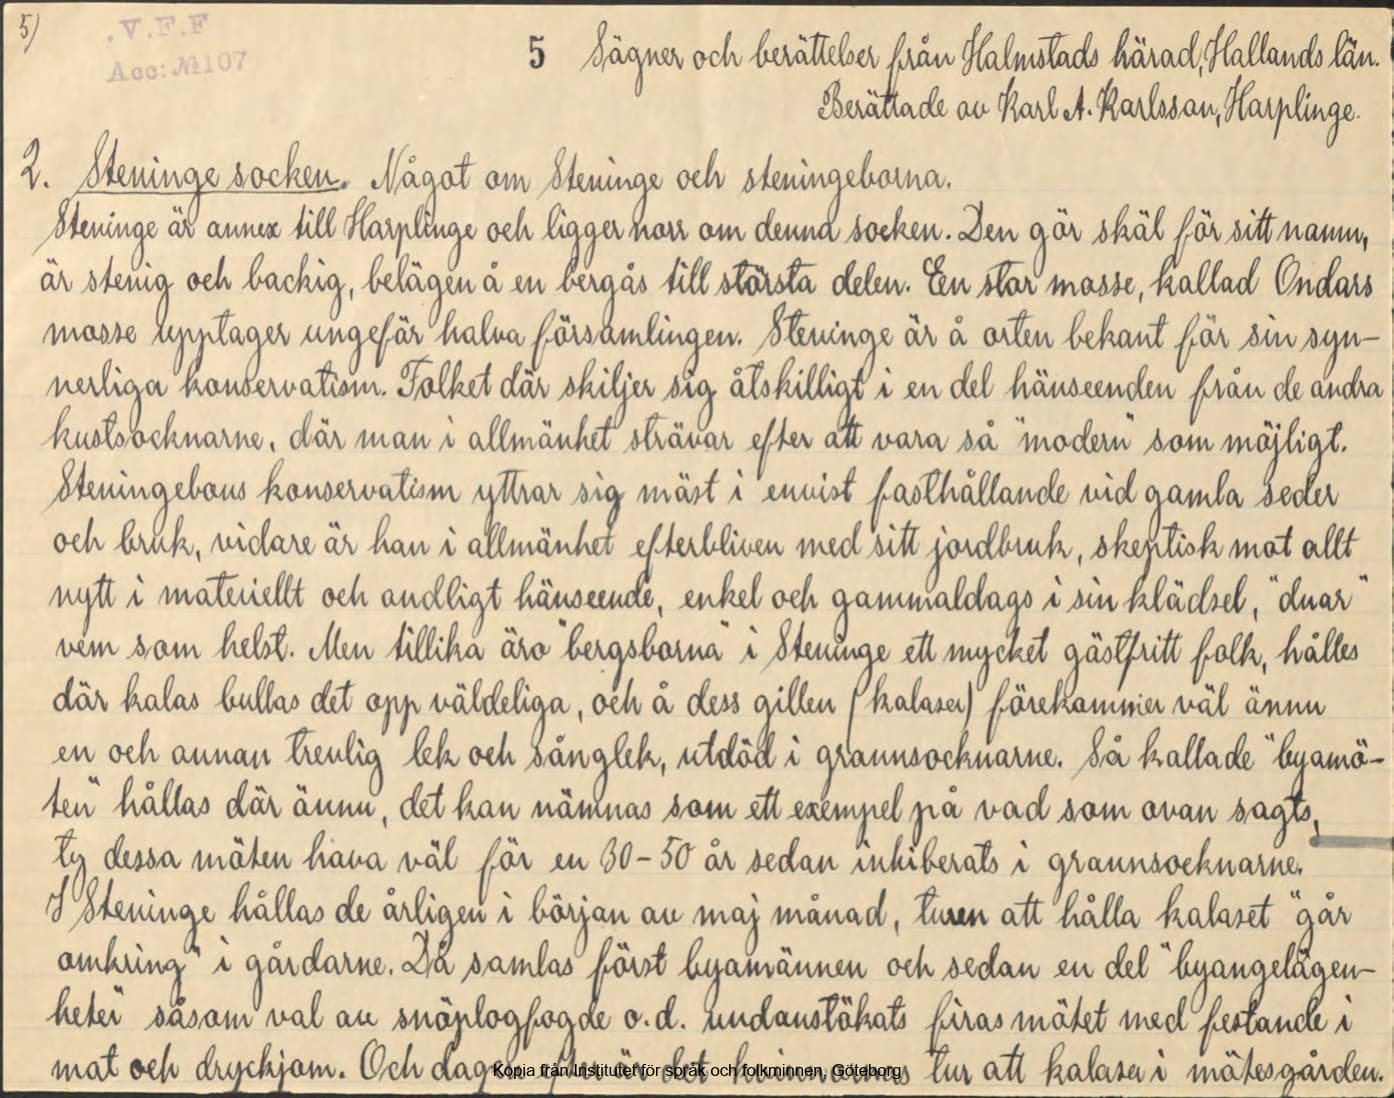 5)
.V.F.F
Acc: №107
5 Sägner och berättelser från Halmstads härad, Hallands län.
Berättade av Karl A. Karlsson, Harplinge.
2. Steninge socken. Något om Steninge och steningeborna.
Steninge är annex till Harplinge och ligger norr om denna socken. Den gör skäl för sitt namn,
är stenig och backig, belägen å en bergås till största delen. En stor mosse, kallad Ondars
mosse upptager ungefär halva församlingen. Steninge är å orten bekant för sin syn-
nerliga konservatism. Folket där skiljer sig åtskilligt i en del hänseenden från de andra
kustsocknarne, där man i allmänhet strävar efter att vara så "modern" som möjligt.
Steningebons konservatism yttrar sig mäst i envist fasthållande vid gamla seder
och bruk, vidare är han i allmänhet efterbliven med sitt jordbruk, skeptisk mot allt
nytt i materiellt och andligt hänseende, enkel och gammaldags i sin klädsel, "duar"
vem som helst. Men tillika äro "bergsborna" i Steninge ett mycket gästfritt folk, hålles
där kalas bullas det opp väldeliga, och å dess gillen (kalaser) förekommer väl ännu
en och annan trevlig lek och sånglek, utdöd i grannsocknarne. Så kallade "byamö-
ten" hållas där ännu, det kan nämnas som ett exempel på vad som ovan sagts,
ty dessa möten hava väl för en 30-50 år sedan inhiberats i grannsocknarne.
I Steninge hållas de årligen i början av maj månad, turen att hålla kalaset "går
omkring" i gårdarne. Då samlas först byamännen och sedan en del "byangelägen-
heter" såsom val av snöplogfogde o.d. undanstökats firas mötet med festande i
mat och dryckjom. Och dagen efter är det kvinnornas tur att kalasa i mötesgården.
Kopia från Institutet för språk och folkminnen, Göteborg